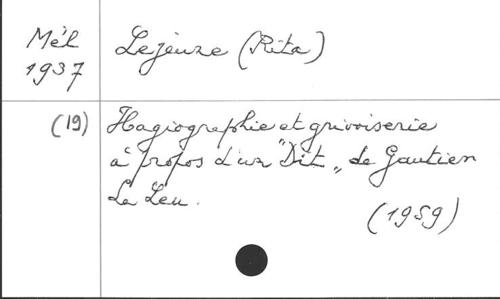 Mél
1937
Lejeune (Rita)
(19)
Hagiographie et grivoiserie
à propos d'un "Dit" de Gautier
Le Leu.
(1959)